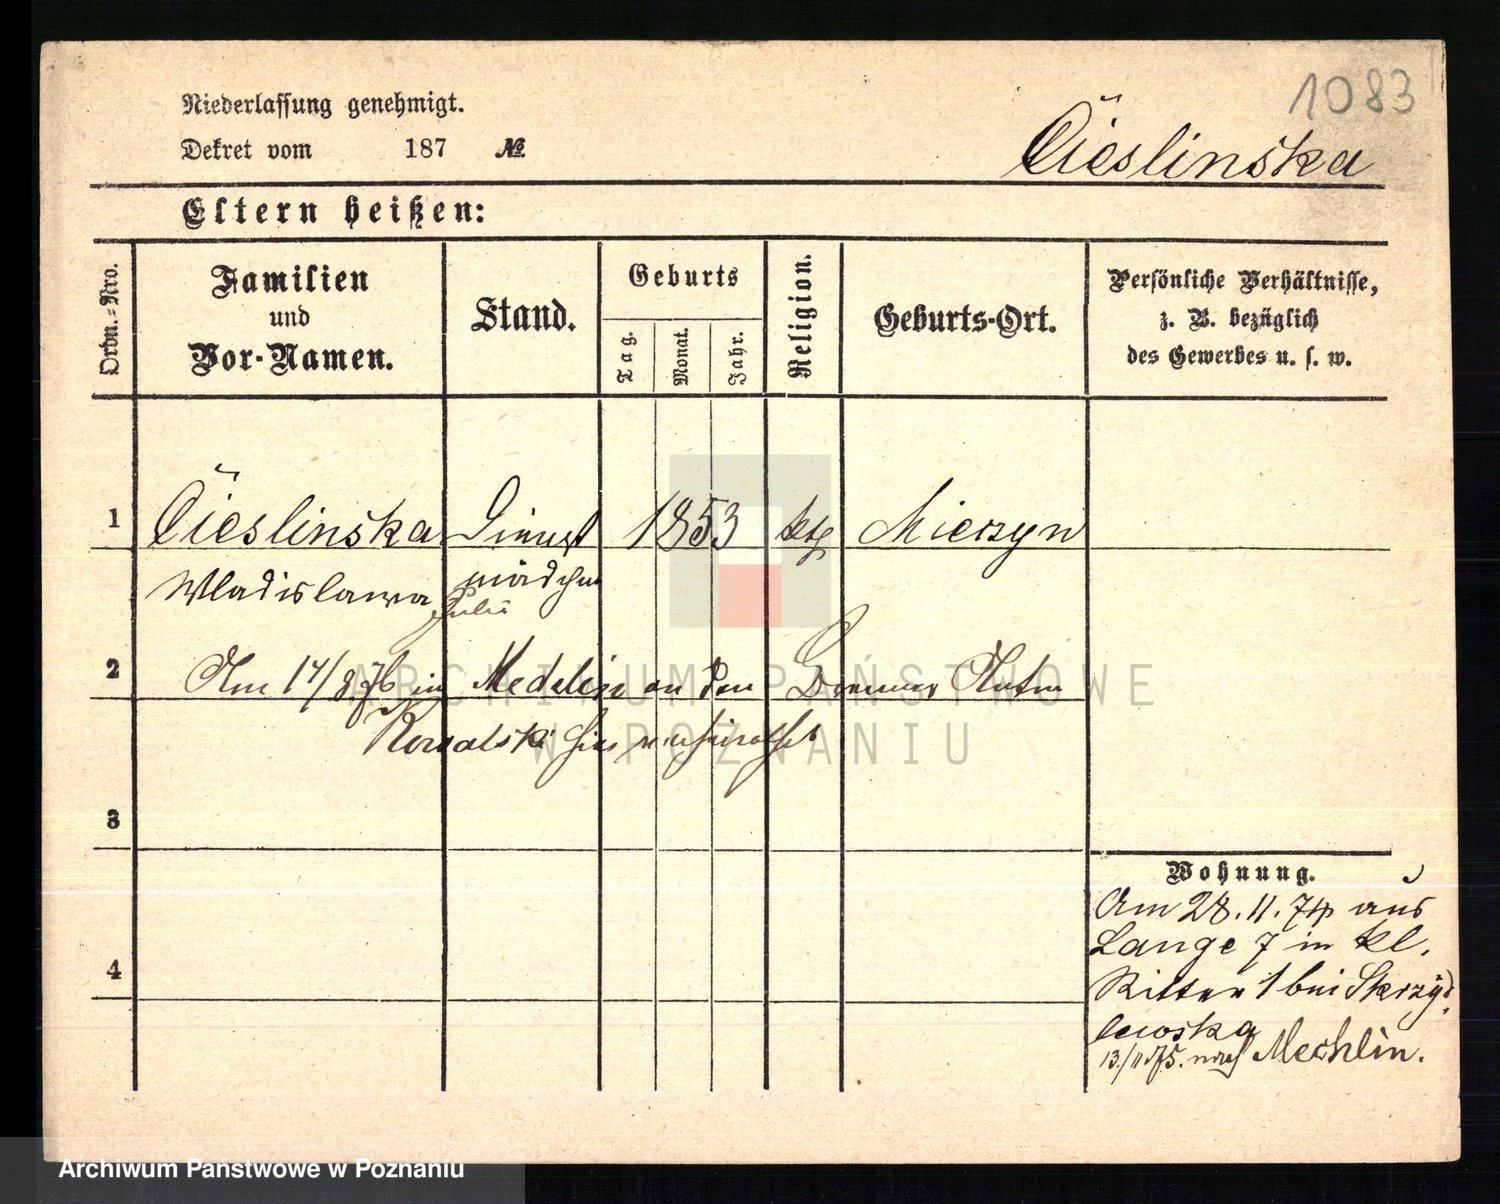 1083
Niederlassung genehmigt.
Dekret vom 187 №
Cieslinska
Eltern heißen:
Ordn.-Nro.
Familien
und
Vor-Namen.
Stand.
Geburts
Tag.
Monat.
Jahr.
Religion.
Geburts-Ort.
Persönliche Verhältnisse,
z. B. bezüglich
des Gewerbes u. s. w.
1 Cieslinska Dienst 1853 kth Mierzyn
Wladislawa mädchen
2 Am 17/8.76 in Mechlin an den Anton
Kowalski hier verheirathet
3
4
Wohnung.
Am 28.11.74 aus
Lange 7 in kl.
Ritter 1 bei Skrzyd
lewska
13/11 75. nach Mechlin.
ARCHIWUM PAŃSTWOWE
W POZNANIU
Archiwum Państwowe w Poznaniu